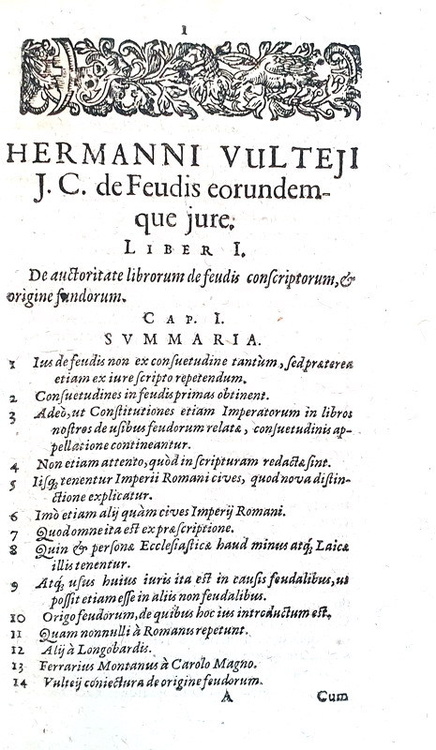 1
HERMANNI VULTEJI
J. C. de Feudis eorundem-
que jure.
LIBER I.
De auctoritate librorum de feudis conscriptorum, &
origine fundorum.
CAP. I.
SVMMARIA.
1 Ius de feudis non ex consuetudine tantùm, sed præterea
etiam ex iure scripto repetendum.
2 Consuetudines in feudis primas obtinent.
3 Adeò, ut Constitutiones etiam Imperatorum in libros
nostros de usibus feudorum relatæ, consuetudinis ap-
pellatione contineantur.
4 Non etiam attento, quòd in scripturam redactæ sint.
5 Iisq; tenentur Imperii Romani cives, quod nova distin-
ctione explicatur.
6 Imò etiam alij quàm cives Imperij Romani.
7 Quod omne ita est ex præscriptione.
8 Quin & personæ Ecclesiasticæ haud minus atq; Laicæ
illis tenentur.
9 Atq; usus huius iuris ita est in causis feudalibus, ut
possit etiam esse in aliis non feudalibus.
10 Origo feudorum, de quibus hoc ius introductum est.
11 Quam nonnulli à Romanis repetunt.
12 Alij à Longobardis.
13 Ferrarius Montanus à Carolo Magno.
14 Vulteij coniectura de origine feudorum.
A Cum